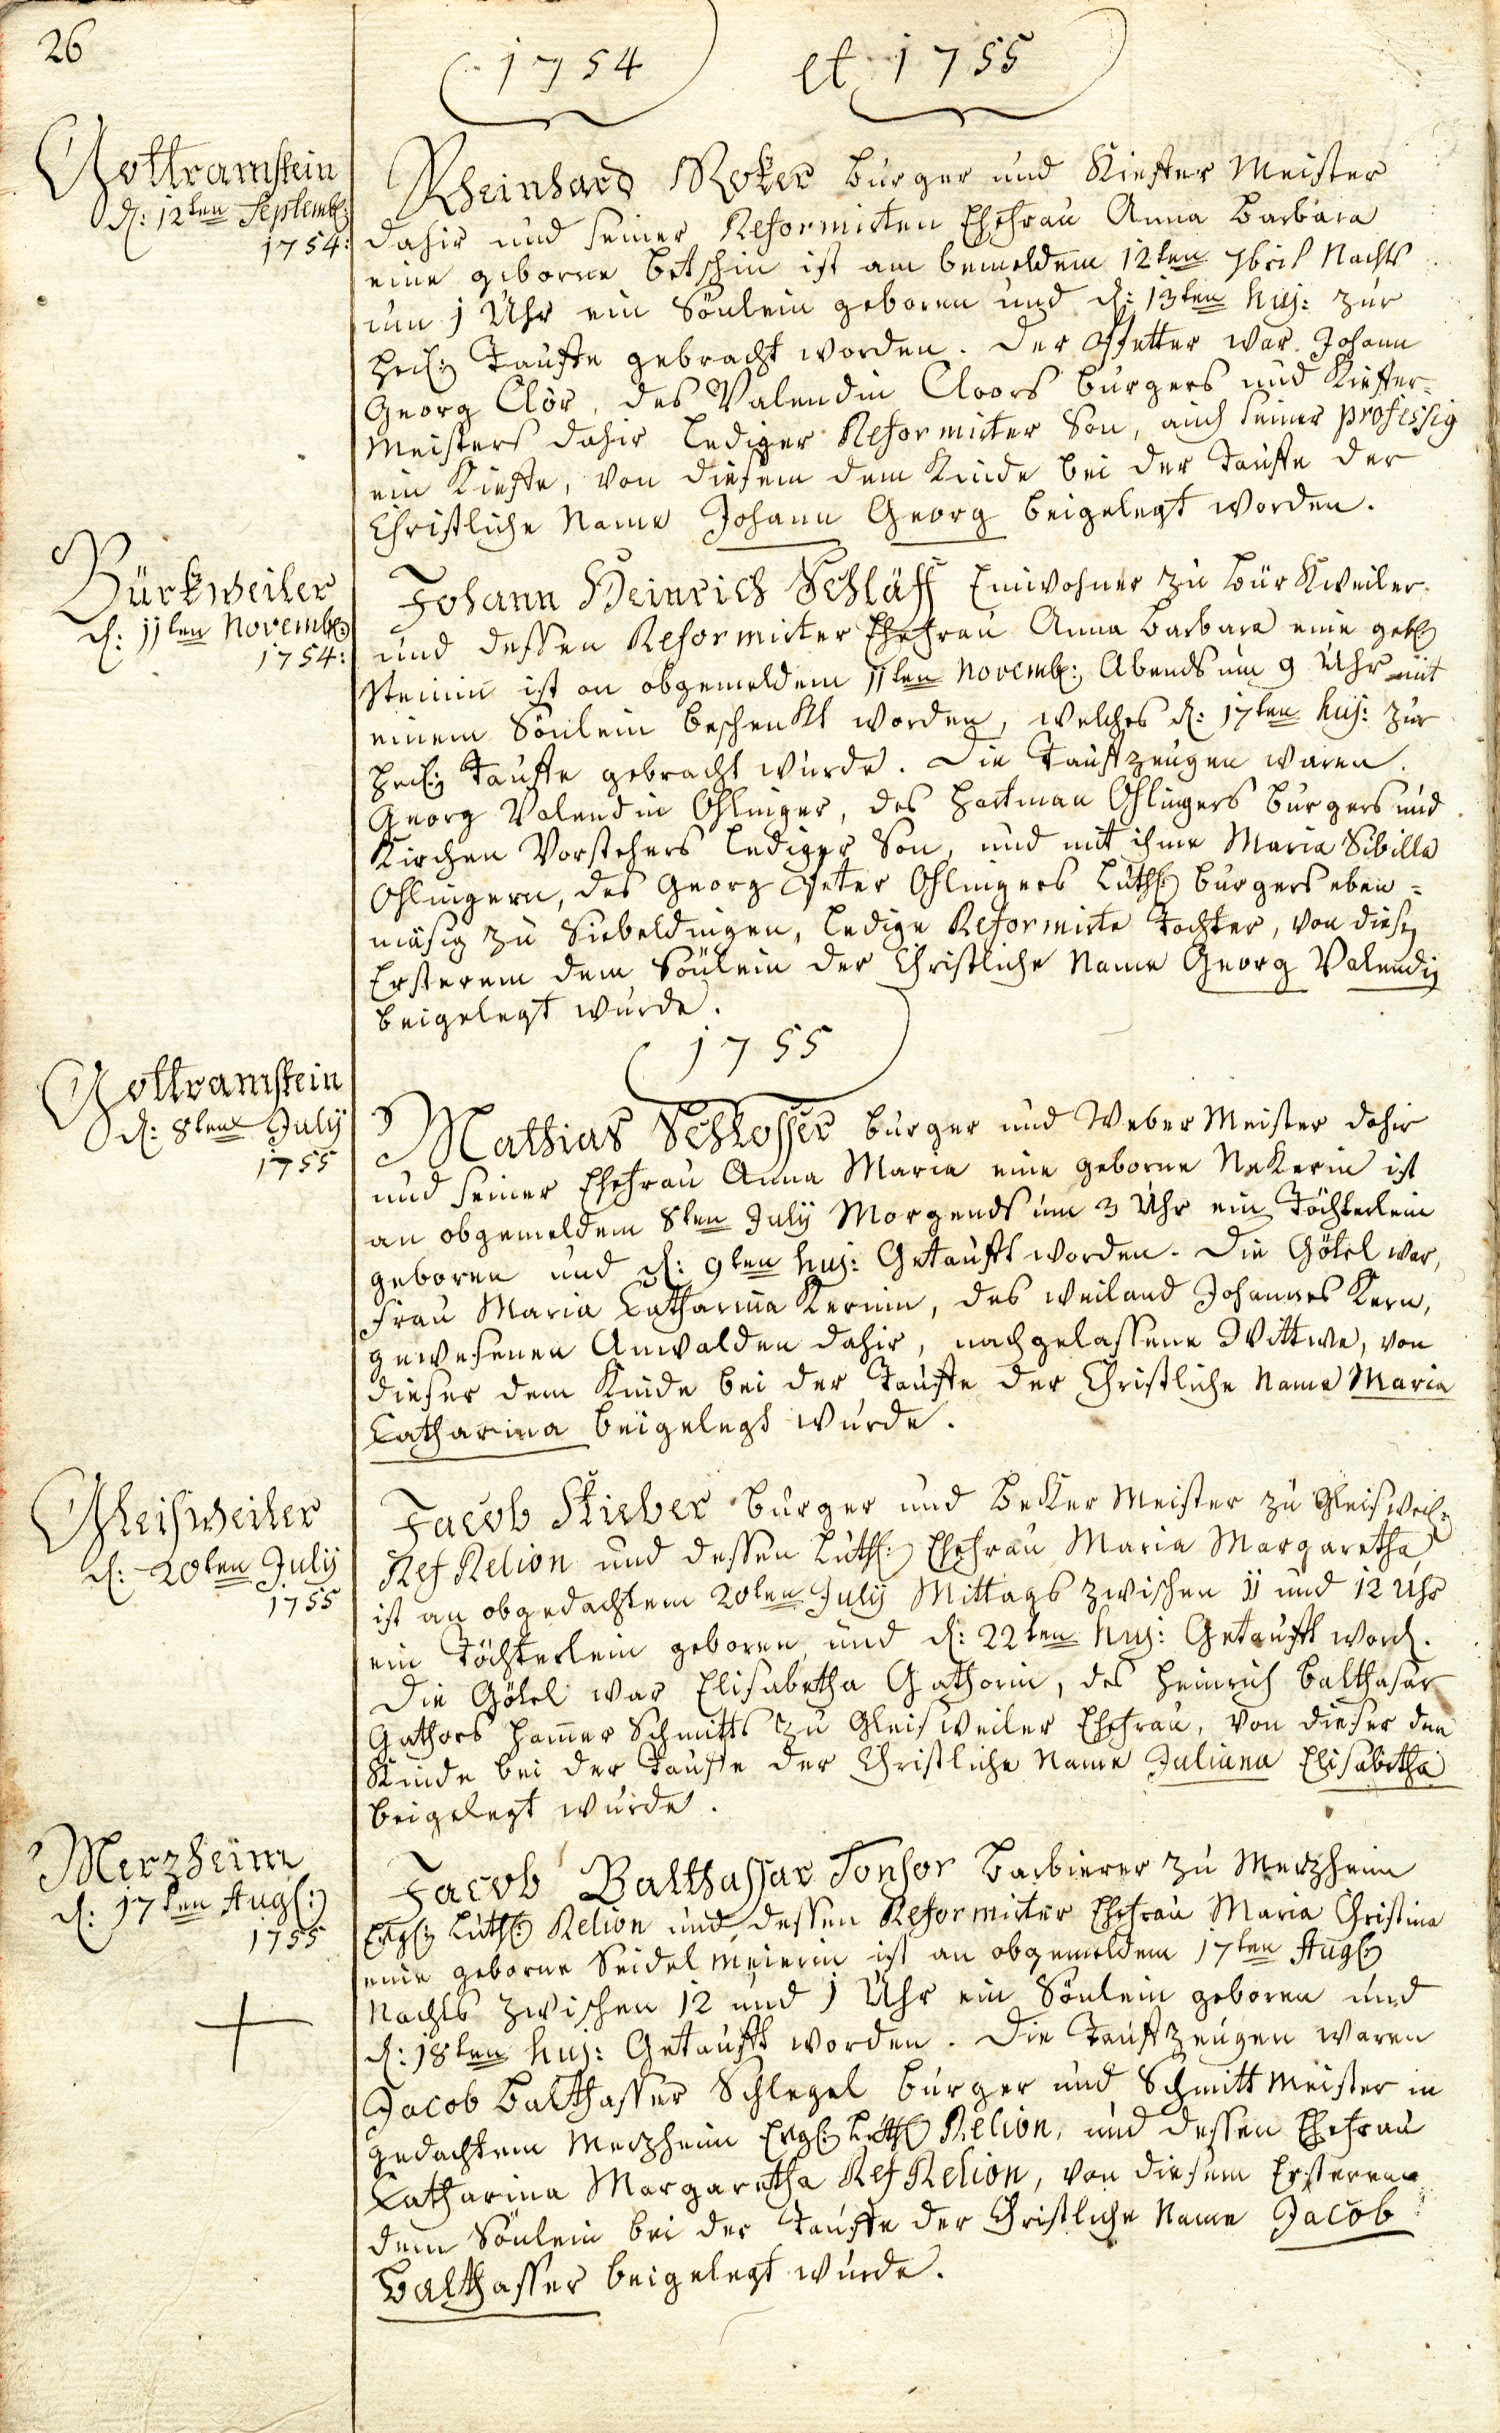 26
1754 et 1755
Gottramstein
d: 12ten Septemb:
1754:
Rheinhard Roker burger und Kieffer Meister
dahir und seiner Reformirten Ehefrau Anna Barbara
eine geborne betschin ist am bemeldem 12ten 7bris Nachts
um 1 Uhr ein Sönlein geboren und d: 13ten huj: zur
heil: Tauffe gebracht worden. Der Pfetter war Johann
Georg Clör, des Valendin Cloors burgers und Kieffer-
Meisters dahir lediger Reformirter Son, auch seiner professig
ein Kieffer, von diesem dem Kinde bei der Tauffe der
Christliche Name Johann Georg beigelegt worden.
Bürkweiler
d: 11ten Novemb:
1754:
Johann Heinrich Schläff Einwohner zu bürkweiler
und dessen Reformirter Ehefrau Anna barbara eine geb:
Steinin ist an obgemeldem 11ten Novemb: Abends um 9 Uhr mit
einem Sönlein beschenkt worden, welches d: 17ten huj: zur
heil: Tauffe gebracht wurde. Die Taufzeugen waren
Georg Valendin Ohlinger, des Hartman Ohlingers burgers und
Kirchen Vorstehers lediger Son, und mit ihme Maria Sibilla
Ohlingern, des Georg Peter Ohlingers Luth: burgers eben=
mäsig zu Siebeldingen, ledige Reformirte Tochter, von diese
Ersterem dem Sönlein der Christliche Name Georg Valendin
beigelegt wurde.
1755
Gottramstein
d: 8ten July
1755
Mathias Schlosser burger und Weber Meister dahir
und seiner Ehefrau Anna Maria eine geborne Nekerin ist
an obgemeldem 8ten July Morgends um 3 Uhr ein Töchterlein
geboren und d: 9ten huj: Getaufft worden. Die Götel war,
Frau Maria Catharina Kernin, des weiland Johannes Kern,
gewesenen Anwalden dahir, nachgelassene Wittwe, von
dieser dem Kinde bei der Tauffe der Christliche Name Maria
Catharina beigelegt wurde.
Gleisweiler
d: 20ten July
1755
Jacob Stieber burger und becker Meister zu Gleisweil:
Ref Relion und dessen Luth: Ehefrau Maria Margaretha
ist an obgedachtem 20ten July Mittags zwischen 11 und 12 Uhr
ein Töchterlein geboren und d: 22ten huj: Getaufft word.
Die Götel war Elisabetha Gathorin, des Heinrich balthasar
Gathors hamer Schmitts zu Gleisweiler Ehefrau, von dieser den
Kinde bei der Tauffe der Christliche Name Juliana Elisabetha
beigelegt wurde.
Merzheim
d: 17ten Aug:
1755
Jacob Balthassar Tonsor barbierer zu Merzheim
Evg: Luth: Relion und dessen Reformirter Ehefrau Maria Christina
eine geborne Seidelmeierin ist an obgemeldem 17ten Aug:
Nachts zwischen 12 und 1 Uhr ein Sönlein geboren und
d: 18ten huj: Getaufft worden. Die Taufzeugen waren
Jacob balthasser Schlegel burger und Schmitt Meister in
gedachtem Merzheim Evg: Luth: Relion, und dessen Ehefrau
Catharina Margaretha Ref Relion, von diesem Ersteren
dem Sönlein bei der Tauffe der Christliche Name Jacob
balthasser beigelegt wurde.